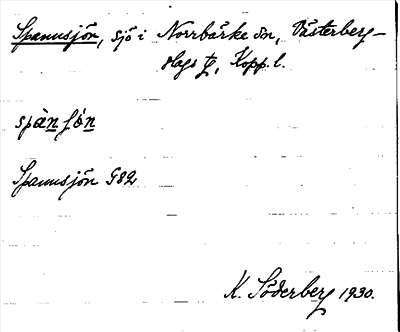 Spannsjön, sjö i Norrbärke sn, Västerberg-
slags tg, Kopp. l.
spànʃọ́n
Spannsjön G82
K. Söderberg 1930.